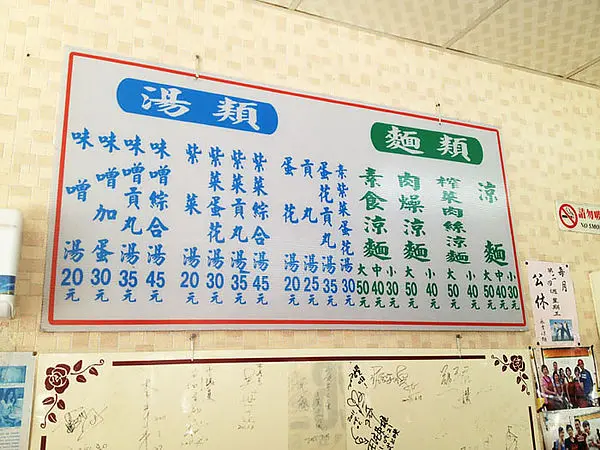 湯類
味噌湯20元
味噌加蛋湯30元
味噌貢丸湯35元
味噌綜合湯45元
紫菜湯20元
紫菜蛋花湯30元
紫菜貢丸湯35元
紫菜綜合湯45元
蛋花湯20元
貢丸湯25元
蛋花貢丸湯35元
素紫菜蛋花湯30元
麵類
素食涼麵大50元中40元小30元
肉燥涼麵大50元小40元
榨菜肉絲涼麵大50元小40元
涼麵大50元中40元小30元
請勿吸
NO SMO
每月
公休